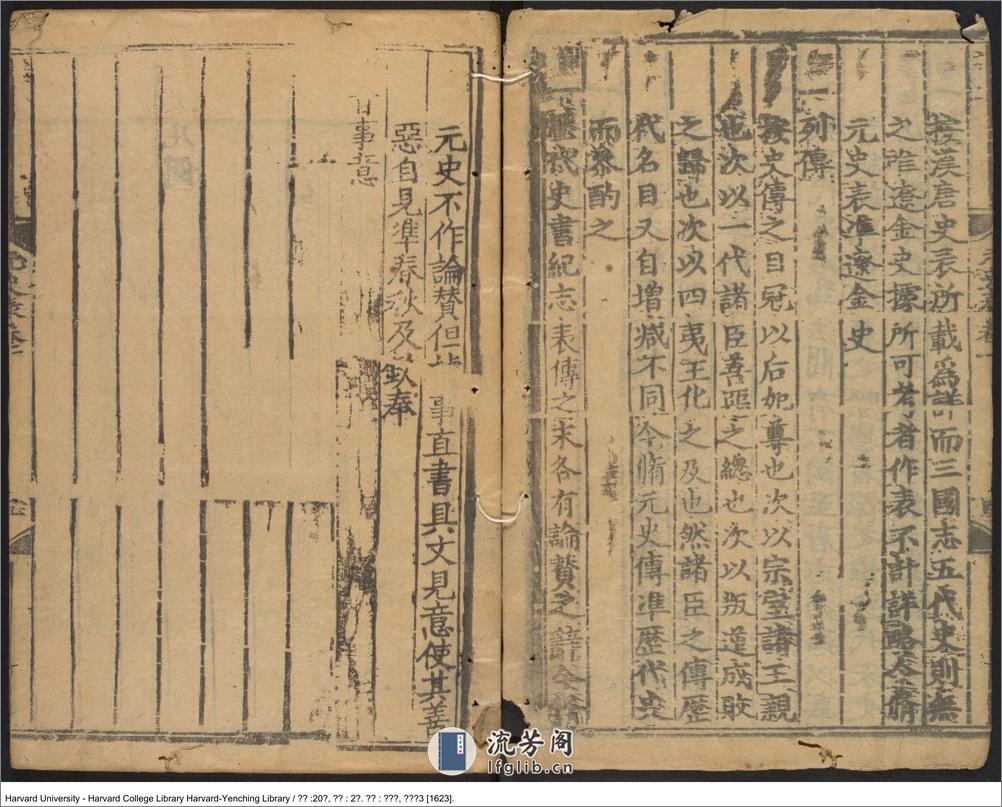 按漢唐史表所載爲詳而三國志五代史則無
之惟遼金史據所可考者作表不計詳略今脩
元史表准遼金史
列傳
按史傳之目冠以后妃尊也次以宗室諸王親
也次以一代諸臣善惡之總也次以叛逆成敗
之歸也次以四夷王化之及也然諸臣之傳歷
代名目又自增減不同今脩元史傳准歷代史
而叅酌之
歷代史書紀志表傳之末各有論贊之辭今脩
元史不作論贊但 事直書具文見意使其善
惡自見準春秋及 欽奉
事意
流芳阁
lfglib.cn
Harvard University - Harvard College Library Harvard-Yenching Library / ?? :20?, ?? : 2?. ?? : ???, ???3 [1623].